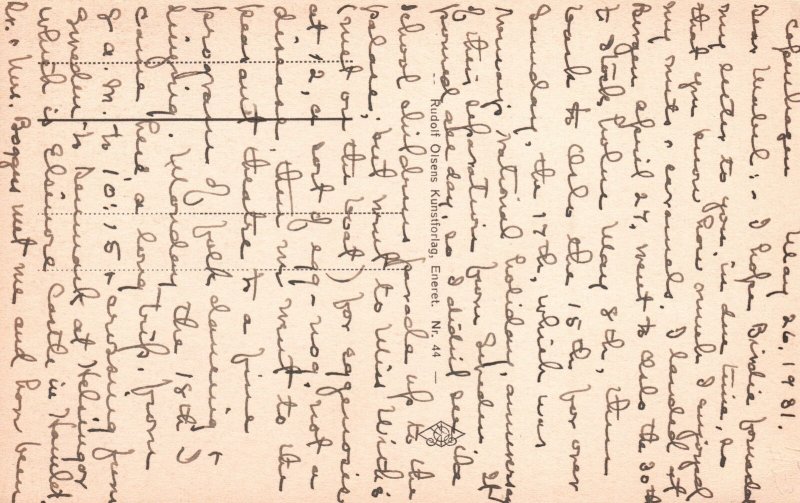 Copenhagen May 26, 1931.
Dear Mabel:- I hope Birdie forwarded
my letter to you in due time, so
that you know how much I enjoyed
my nuts & caramels. I landed at
Bergen April 27, went to Oslo the 30th
to Stockholm May 8th, then
back to Oslo the 15th for over
Sunday, the 17th, which was
Norway's National holiday, anniversary
of their separation from Sweden. It
poured all day, so I didn't see the
school children's parade up to the
palace, but went to Miss Wick's
(met on the boat) for eggenosis
at 12, a sort of egg-nog, not a
disease, then we went to the
peasant theatre to a fine
program of folk dancing &
singing. Monday the 18th I
came here a long trip, from
8 a.m. to 10:15 & crossing from
Sweden to Denmark at Helsingor
which is Elsinore Castle in Hamlet
Dr. & Mrs. Boggs met me and have been
-- Rudolf Olsens Kunstforlag, Eneret. Nr. 44 —